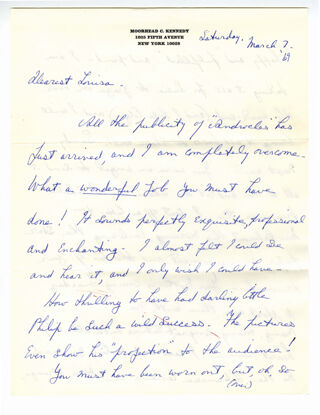 MOORHEAD C. KENNEDY
1035 FIFTH AVENUE
NEW YORK 10028
Saturday, March 7.
'69
Dearest Luisa.
All the publicity of "Androcles" has
just arrived, and I am completely overcome.
What a wonderful job you must have
done! It sounds perfectly exquisite, professional
and enchanting. I almost felt I could see
and hear it, and I only wish I could have.
How thrilling to have had darling little
Philip be such a wild success. The pictures
even show his "projection" to the audience!
You must have been worn out, but oh, so
(over)